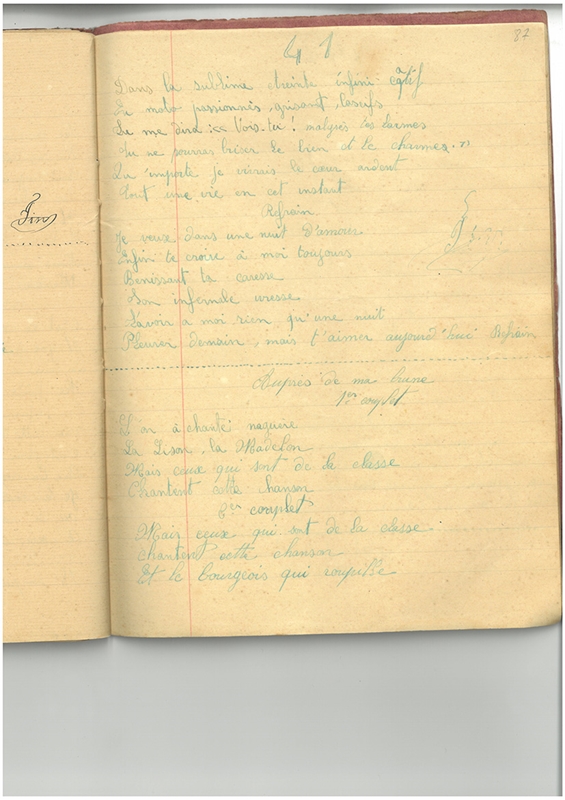 Fin
87
41
Dans la sublime étreinte infini
En mots passionnés, grisant, lascifs
Tu me dira : << Vois-tu ! malgrés tes larmes
Tu ne pourras briser le lien et le charmes. ")
Qu'importe je vivrais le cœur ardent
Tout une vie en cet instant
Refrain
Je veux dans une nuit D'amour
Enfin te croire à moi toujours
Benissant ta caresse
Son infernale ivresse
T'avoir a moi rien qu'une nuit
Pleurer demain, mais t'aimer aujourd'hui Refrain
Auprès de ma brune
1er couplet
L'on à chanté naguère
La Lison, la Madelon
Mais ceux qui sont de la classe
Chantent cette chanson
2er couplet
Mais ceux qui sont de la classe
chantent cette chanson
Et le bourgeois qui roupille